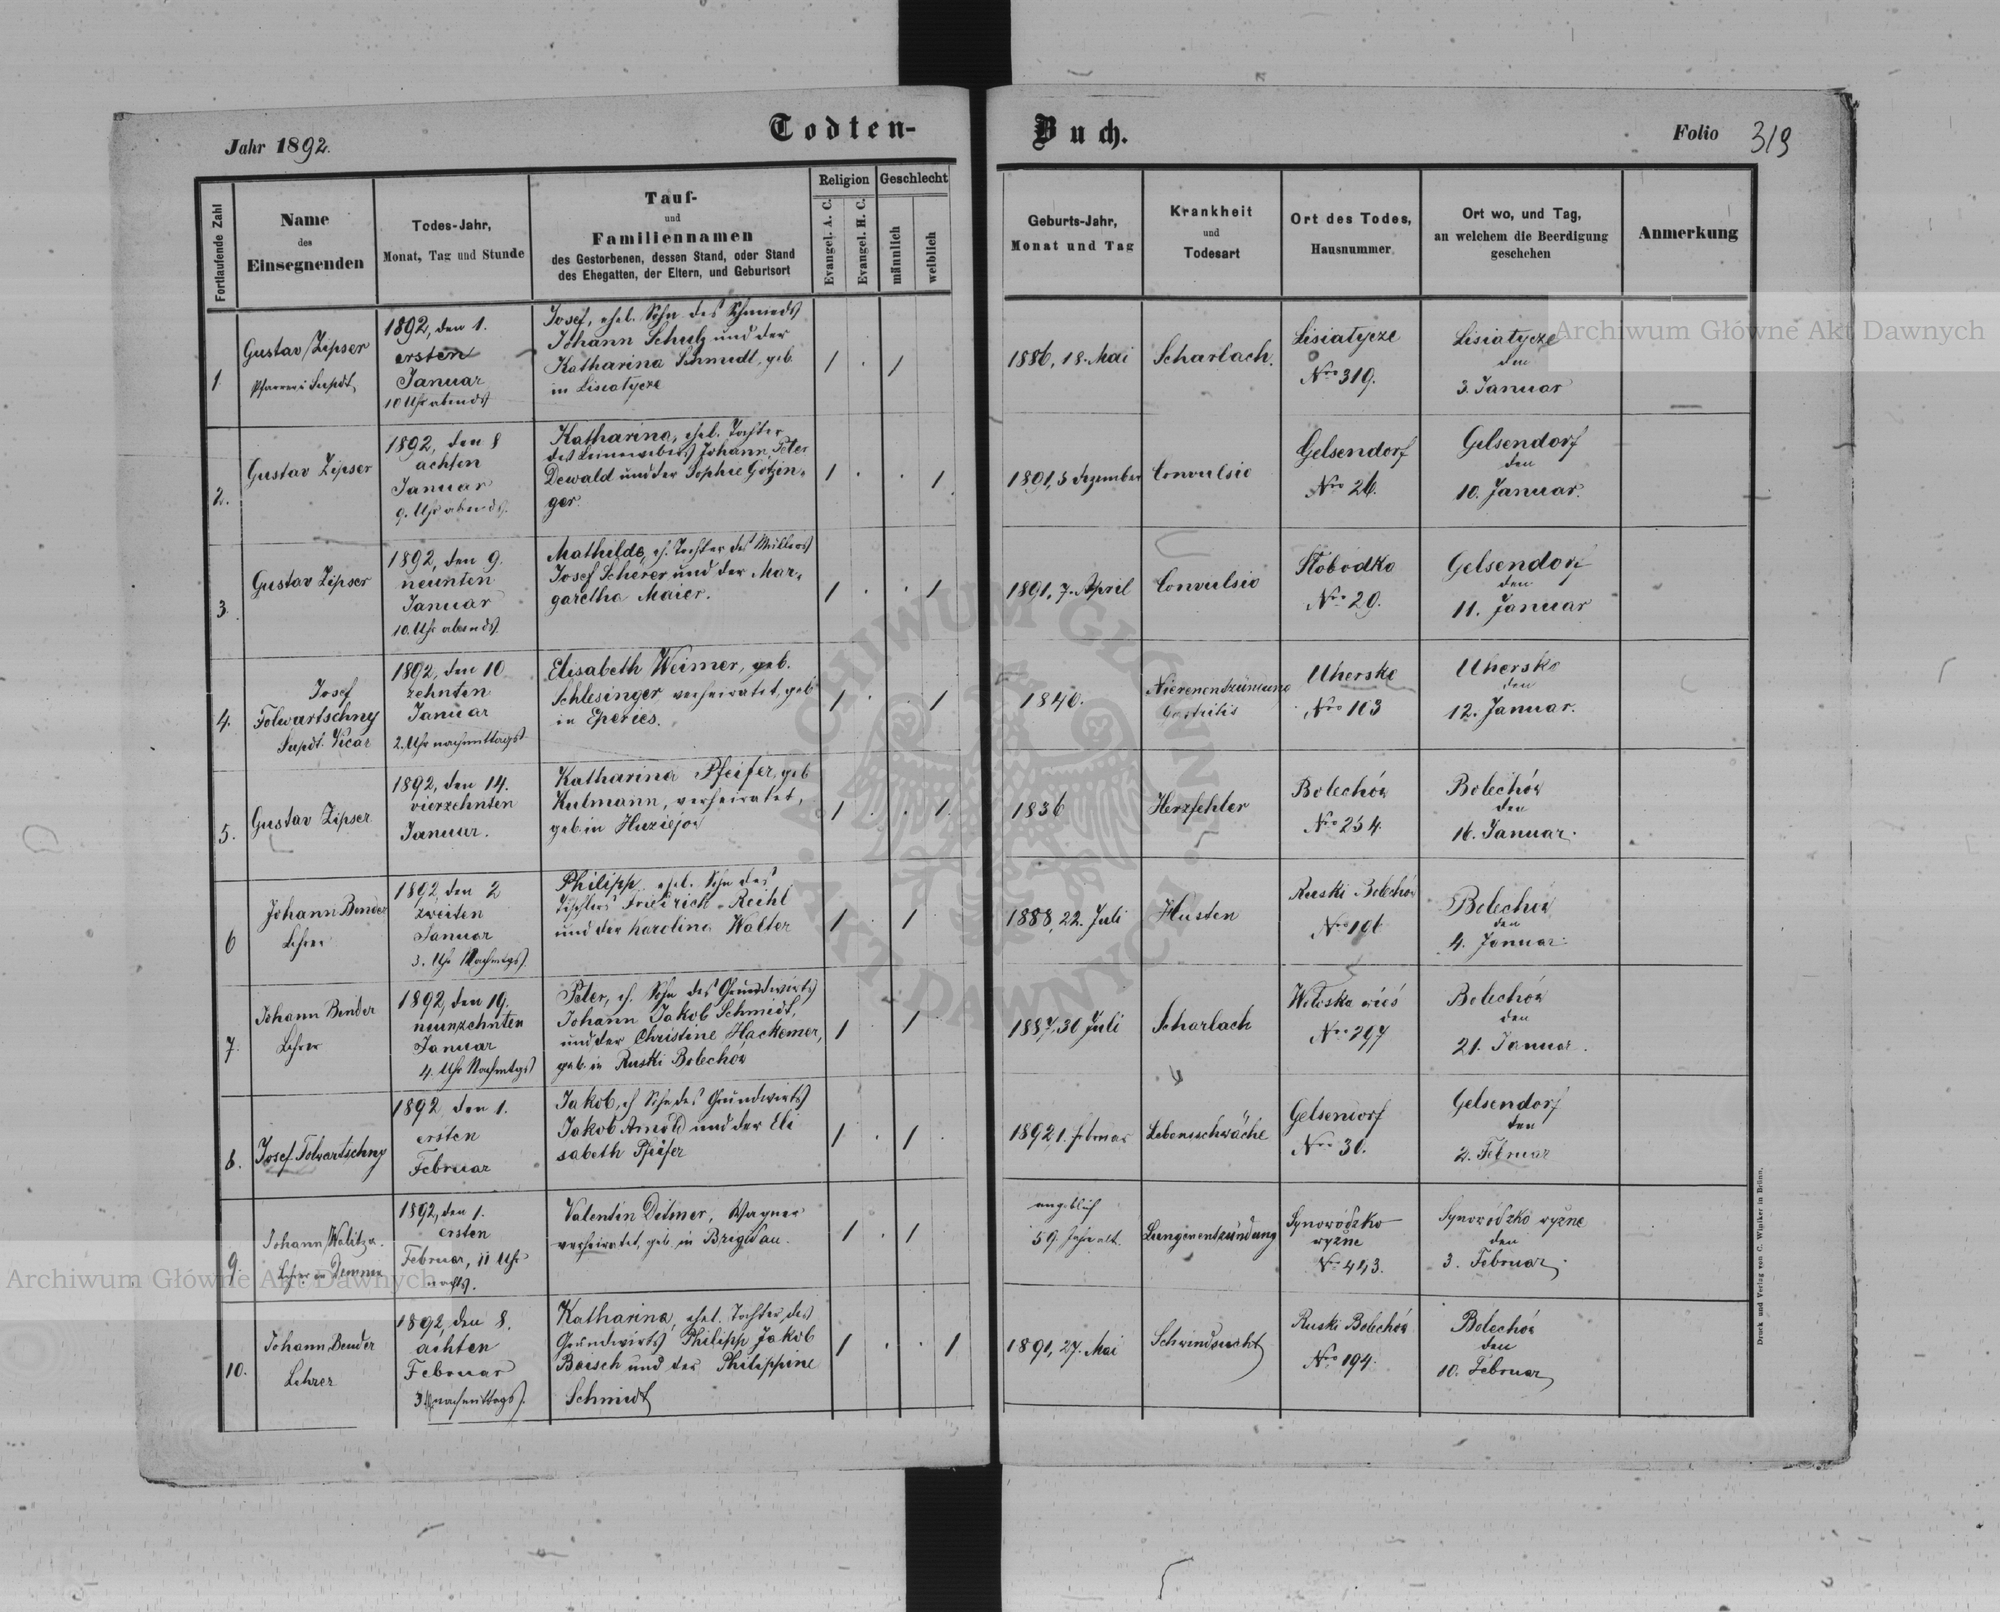 Jahr 1892.
Todten-
Buch.
Folio 319
Fortlaufende Zahl
Name
des
Einsegnenden
Todes-Jahr,
Monat, Tag und Stunde
Tauf-
und
Familiennamen
des Gestorbenen, dessen Stand, oder Stand
des Ehegatten, der Eltern, und Geburtsort
Religion
Evangel. A. C.
Evangel. H. C.
Geschlecht
männlich
weiblich
Geburts-Jahr,
Monat und Tag
Krankheit
und
Todesart
Ort des Todes,
Hausnummer
Ort wo, und Tag,
an welchem die Beerdigung
geschehen
Anmerkung
1.
Gustav Zipser
Pfarrer u. Supdt.
1892, den 1.
ersten
Januar
10 Uhr abends
Josef, ehel. Sohn des Schmieds
Johann Schulz und der
Katharina Schmidt, geb.
in Lisiatycze
1 . 1
1886, 18. Mai
Scharlach.
Lisiatycze
Nro 319.
Lisiatycze
den
3. Januar
2.
Gustav Zipser
1892, den 8
achten
Januar
9. Uhr abends.
Katharina, ehel. Tochter
des Leinewebers Johann Peter
Dewald und der Sophie Götzin-
ger.
1 . . 1
1891, 5 Dezember
Convulsio
Gelsendorf
Nro 26.
Gelsendorf
den
10. Januar.
3.
Gustav Zipser
1892, den 9.
neunten
Januar
10. Uhr abends.
Mathilde, eh. Tochter des Müllers
Josef Scherer und der Mar-
garetha Maier.
1 . . 1
1891, 7. April
Convulsio
Słobodka
Nro 29.
Gelsendorf
den
11. Januar
4.
Josef
Folwartschny
Supdt. Vicar
1892, den 10.
zehnten
Januar
2. Uhr nachmittags
Elisabeth Weimer, geb.
Schlesinger, verheiratet, geb
in Eperies.
1 . . 1
1840.
Nierenentzündung
Uhersko
Nro 103
Uhersko
den
12. Januar.
5.
Gustav Zipser
1892, den 14.
vierzehnten
Januar.
Katharina Pfeifer, geb
Kulmann, verheiratet,
geb in Huziejow
1 . . 1.
1836
Herzfehler
Bolechów
Nro 254.
Bolechów
den
16. Januar.
6
Johann Bender
Lehrer
1892, den 2
zweiten
Januar
3. Uhr Nachmtgs.
Philipp, ehel. Sohn des
Tischlers Friedrich Reihl
und der Karolina Walter
1 . 1
1888, 22. Juli
Husten
Ruski Bolechów
Nro 106
Bolechów
den
4. Januar.
7.
Johann Bender
Lehrer
1892, den 19.
neunzehnten
Januar
4. Uhr Nachmtgs
Peter, eh. Sohn des Grundwirts
Johann Jakob Schmidt,
und der Christine Hackemer,
geb. in Ruski Bolechów
1 . 1
1887, 30 Juli
Scharlach
Wołoska wieś
Nro 297
Bolechów
den
21. Januar.
8.
Josef Folwartschny
1892, den 1.
ersten
Februar
Jakob, eh Sohn des Grundwirts
Jakob Arnold und der Eli
sabeth Pfeifer
1 . 1 .
1892, 1. Februar
Lebensschwäche
Gelsendorf
Nro 30.
Gelsendorf
den
2. Februar
9.
Johann Walitza.
Lehrer in
1892, den 1.
ersten
Februar, 11 Uhr
nachts.
Valentin Ditmer, Wagner
verheiratet, geb. in Brigidau.
1 . 1
angeblich
59 Jahre alt.
Lungenentzündung
Synowódzko
wyżne
Nro 443.
Synowódzko wyżne
den
3. Februar.
10.
Johann Bender
Lehrer
1892, den 8.
achten
Februar
3 Uhr nachmittags.
Katharina, ehel. Tochter des
Grundwirts Philipp Jakob
Baisch und der Philippine
Schmidt
1 . . 1
1891, 27. Mai
Schwindsucht
Ruski Bolechów
Nro 194.
Bolechów
den
10. Februar
Druck und Verlag von C. Winiker in Brünn.
Archiwum Główne Akt Dawnych
Archiwum Główne Akt Dawnych
ARCHIWUM GŁÓWNE · AKT DAWNYCH ·